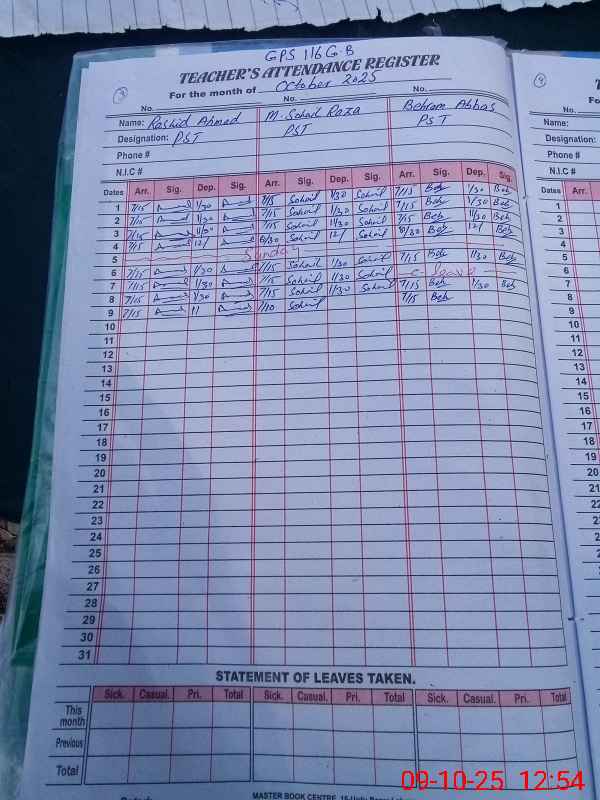 GPS 116 G.B
TEACHER'S ATTENDANCE REGISTER
3 For the month of October 2025
No. No. No.
Name: Rashid Ahmad M. Sohail Raza Behram Abbas
Designation: PST PST PST
Phone #
N.I.C #
Dates Arr. Sig. Dep. Sig. Arr. Sig. Dep. Sig. Arr. Sig. Dep. Sig.
1 7/15 1/30 7/15 Sohail 1/30 Sohail 7/15 Beh 1/30 Beh
2 7/15 1/30 7/15 Sohail 1/30 Sohail 7/15 Beh 1/30 Beh
3 7/15 1/30 7/15 Sohail 1/30 Sohail 7/15 Beh 1/30 Beh
4 7/15 12/ 8/30 Sohail 12/ Sohail 8/30 Beh 12/ Beh
5 Sunday
6 7/15 1/30 7/15 Sohail 1/30 Sohail 7/15 Beh 1/30 Beh
7 7/15 1/30 7/15 Sohail 1/30 Sohail C- Leave
8 7/15 1/30 7/15 Sohail 1/30 Sohail 7/15 Beh 1/30 Beh
9 7/15 11 7/10 Sohail 7/15 Beh
10
11
12
13
14
15
16
17
18
19
20
21
22
23
24
25
26
27
28
29
30
31
STATEMENT OF LEAVES TAKEN.
Sick. Casual. Pri. Total Sick. Casual. Pri. Total Sick. Casual. Pri. Total
This month
Previous
Total
MASTER BOOK CENTRE
4
For
Name:
Designation:
Phone #
N.I.C #
Dates Arr.
1
2
3
4
5
6
7
8
9
10
11
12
13
14
15
16
17
18
19
20
21
22
23
24
25
26
27
28
29
30
31
This month
Previous
Total
09-10-25 12:54